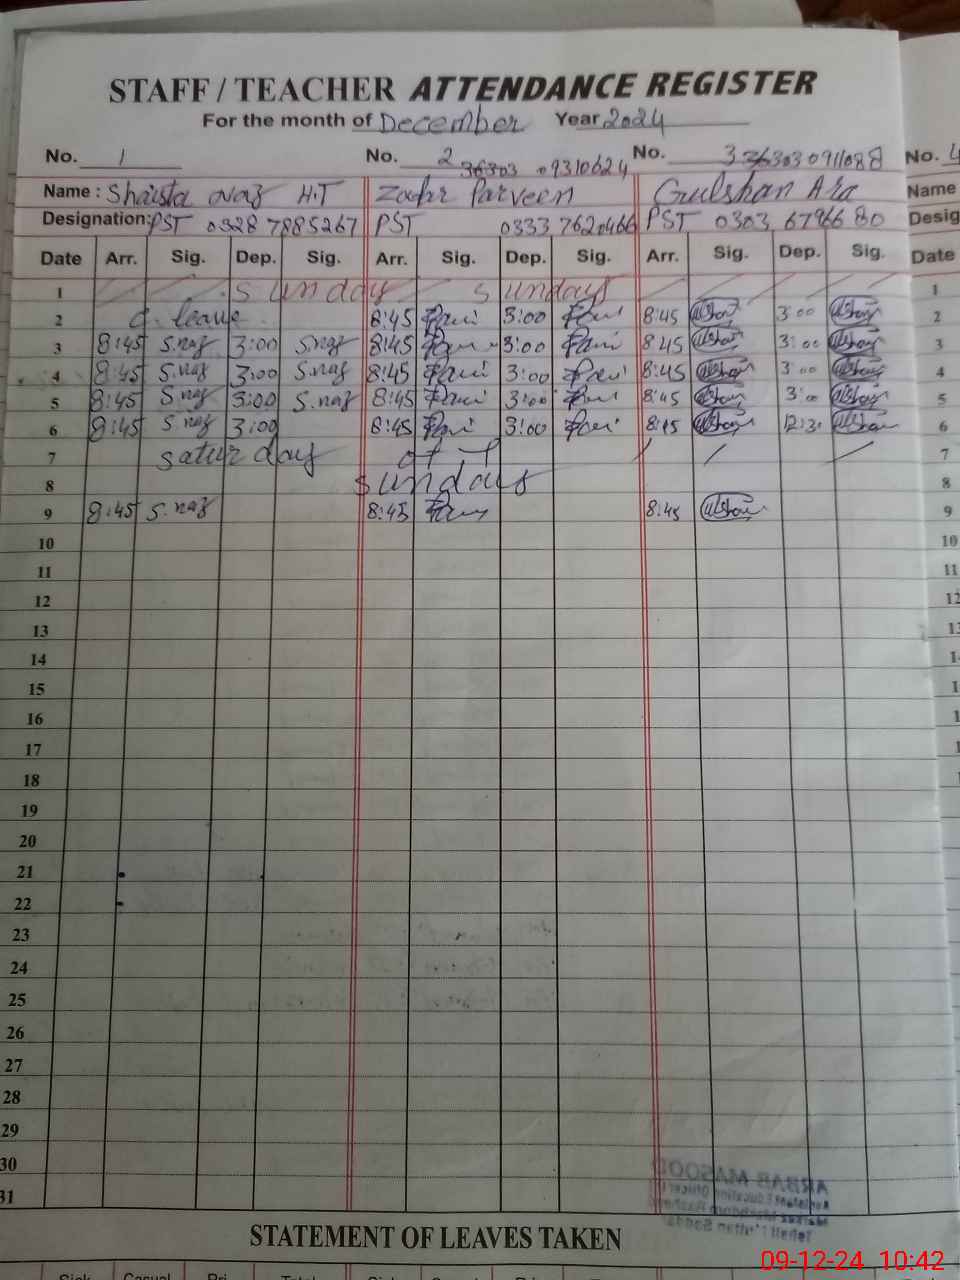 STAFF / TEACHER ATTENDANCE REGISTER
For the month of December Year 2024
No. 1 No. 2 36303 09310624 No. 3 36303 0911088 No. 4
Name : Shaista Naz H.T Parveen Gulshan Ara Name
Designation: PST 0328 7885267 PST 0333 7620466 PST 0303 6796680 Desig
Date Arr. Sig. Dep. Sig. Arr. Sig. Dep. Sig. Arr. Sig. Dep. Sig. Date
1 Sunday Sundays 1
2 C. leave 8:45 3:00 8:45 3:00 2
3 8:45 S.naz 3:00 S.naz 8:45 3:00 8:45 3:00 3
4 8:45 S.naz 3:00 S.naz 8:45 3:00 8:45 3:00 4
5 8:45 S.naz 3:00 S.naz 8:45 3:00 8:45 3:00 5
6 8:45 S.naz 3:00 8:45 3:00 8:45 12:30 6
7 Saturday off 7
8 Sundays 8
9 8:45 S.naz 8:45 8:45 9
10 10
11 11
12 12
13 13
14 1
15 1
16 1
17 1
18
19
20
21
22
23
24
25
26
27
28
29
30
31
ARBAB MASOOD
Assistant Education Officer
STATEMENT OF LEAVES TAKEN
09-12-24 10:42